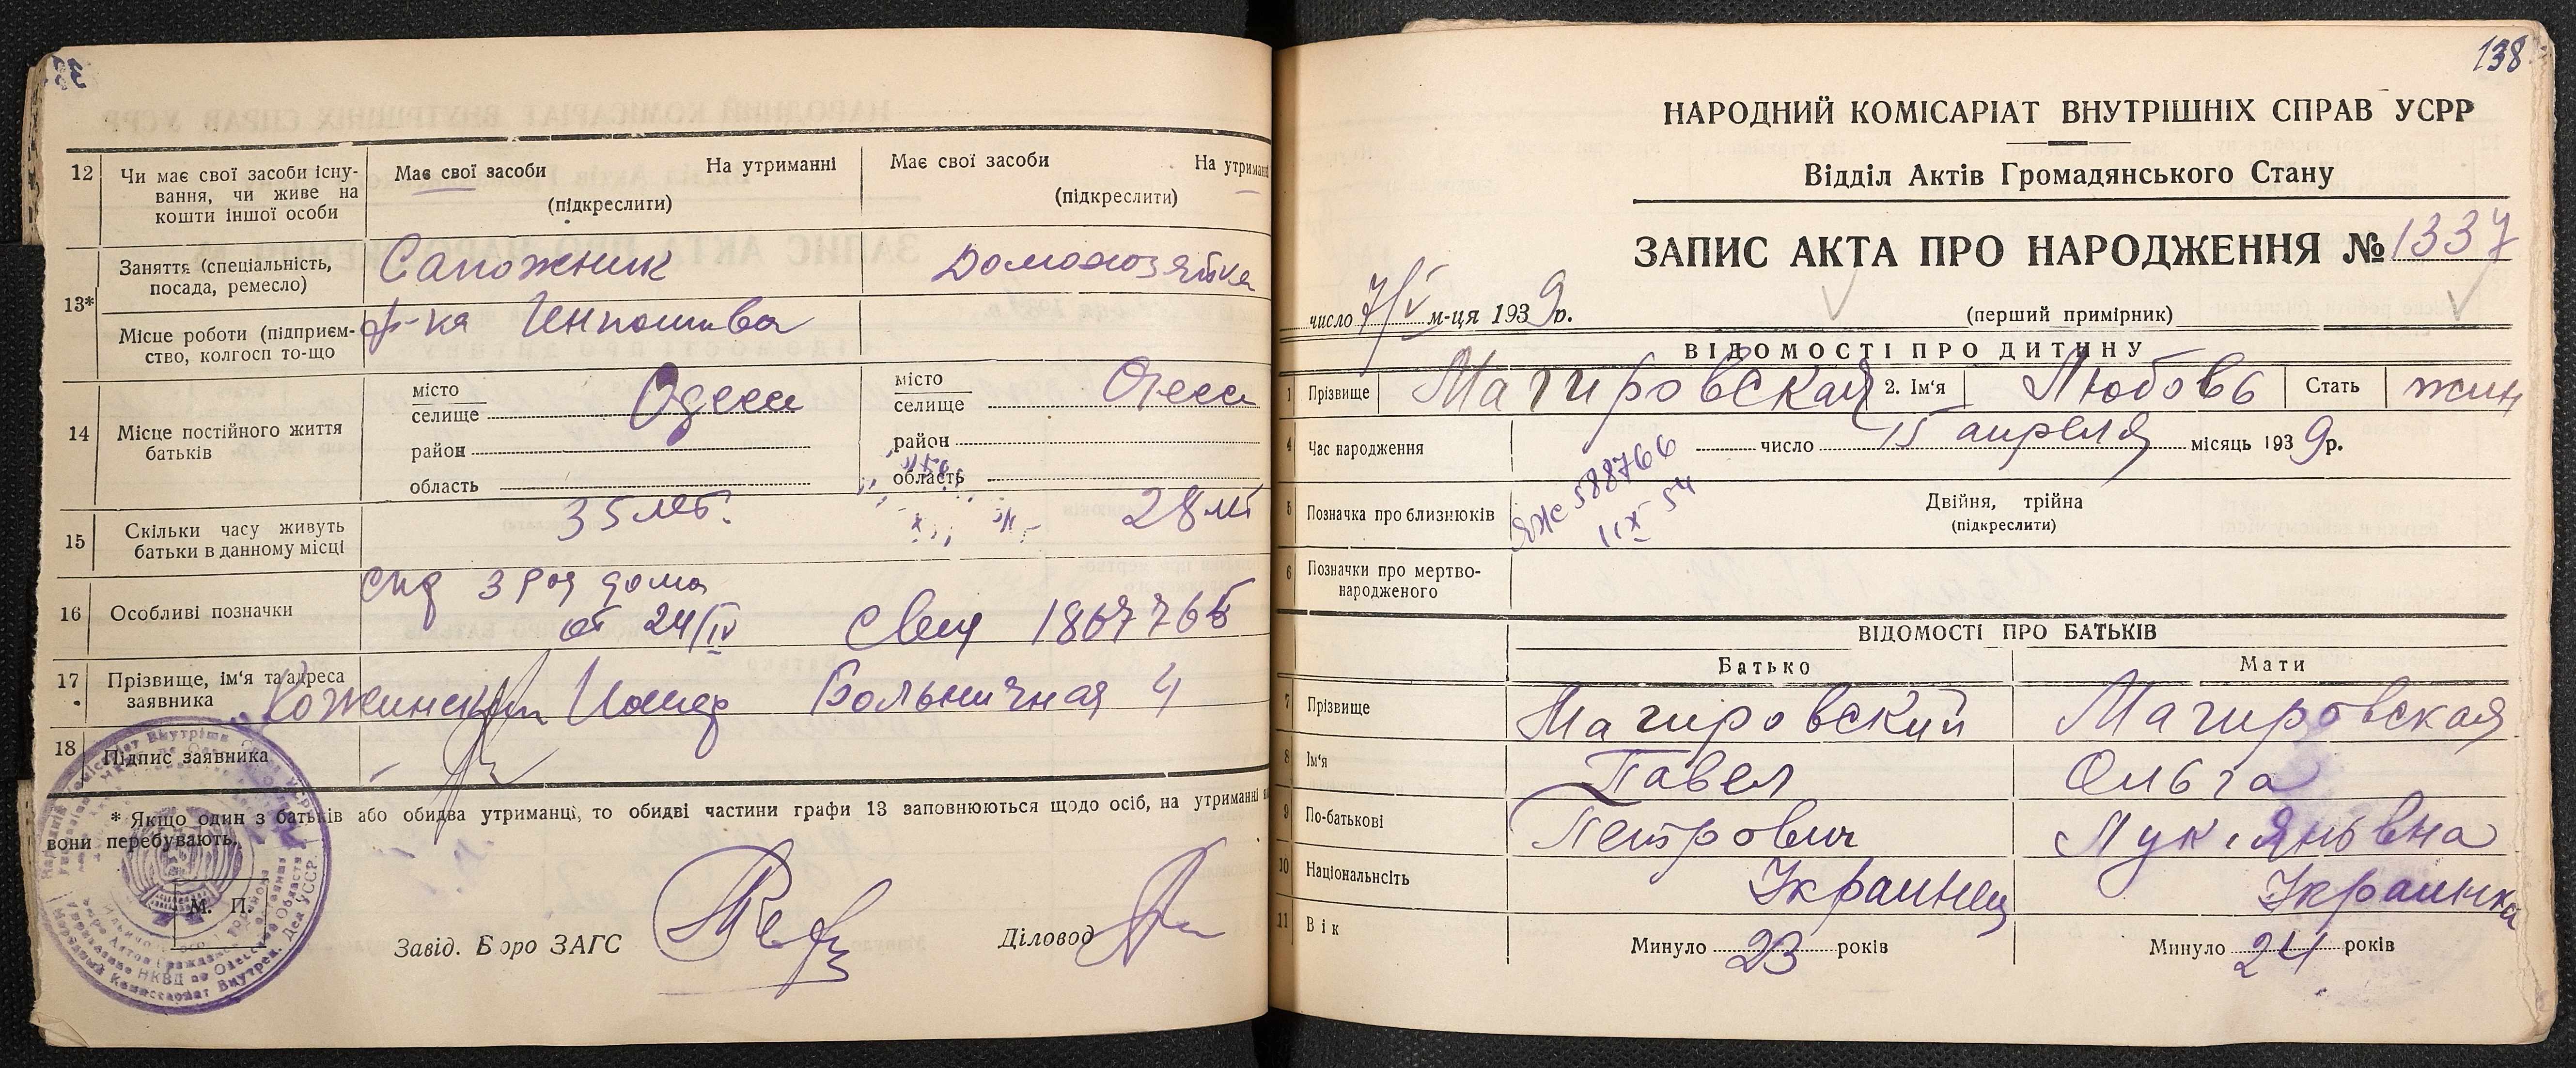 12
Чи має свої засоби існу-
вання, чи живе на
кошти іншої особи
Має свої засоби На утриманні
(підкреслити)
Має свої засоби На утриманні
(підкреслити)
13*
Заняття (спеціальність,
посада, ремесло)
Сапожник
Домохозяйка
Місце роботи (підприєм-
ство, колгосп то-що
ф-ка Инпошива
14
Місце постійного життя
батьків
місто
селище Одесса
район
область
місто
селище Одесса
район
область
15
Скільки часу живуть
батьки в данному місці
35 лет.
28 лет
16
Особливі позначки
3 дома
от 24/IV
17
Прізвище, ім'я та адреса
заявника
Больничная 4
18
Підпис заявника
* Якщо один з батьків або обидва утриманці, то обидві частини графи 13 заповнюються щодо осіб, на утриманні
вони перебувають.
М. П.
Завід. Бюро ЗАГС
Діловод
138
НАРОДНИЙ КОМІСАРІАТ ВНУТРІШНІХ СПРАВ УСРР
Відділ Актів Громадянського Стану
ЗАПИС АКТА ПРО НАРОДЖЕННЯ № 1337
число 7/V м-ця 1939р.
(перший примірник)
ВІДОМОСТІ ПРО ДИТИНУ
1 Прізвище Магировская 2. Ім'я Любовь Стать жин
4 Час народження число 15 апреля місяць 1939р.
5 Позначка про близнюків
ЯЖ 588766
Двійня, трійна
(підкреслити)
6 Позначки про мертво-
народженого
ВІДОМОСТІ ПРО БАТЬКІВ
Батько Мати
7 Прізвище Магировский Магировская
8 Ім'я Павел Ольга
9 По-батькові Петрович Лукияновна
10 Національнсіть Украинец Украинка
11 Вік Минуло 23 років Минуло 24 років